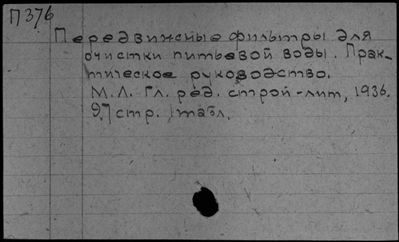 П376
Передвижные фильтры для
очистки питьевой воды. Прак-
тическое руководство.
М.Л. Гл. ред. строй-лит, 1936.
97 стр. 1 табл.